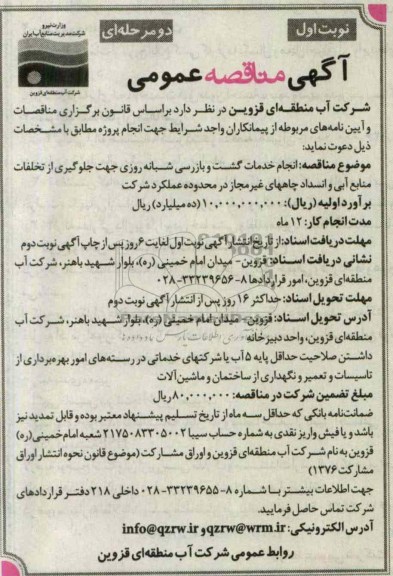 نوبت اول
دو مرحله‌ای
وزارت نیرو
شرکت مدیریت منابع آب ایران
شرکت آب منطقه‌ای قزوین
آگهی مناقصه عمومی
شرکت آب منطقه‌ای قزوین در نظر دارد براساس قانون برگزاری مناقصات
و آیین نامه‌های مربوطه از پیمانکاران واجد شرایط جهت انجام پروژه مطابق با مشخصات
ذیل دعوت نماید:
موضوع مناقصه: انجام خدمات گشت و بازرسی شبانه روزی جهت جلوگیری از تخلفات
منابع آبی و انسداد چاههای غیرمجاز در محدوده عملکرد شرکت
برآورد اولیه (ریال): ۱۰,۰۰۰,۰۰۰,۰۰۰ (ده میلیارد) ریال
مدت انجام کار: ۱۲ ماه
مهلت دریافت اسناد: از تاریخ انتشار آگهی نوبت اول لغایت ۶ روز پس از چاپ آگهی نوبت دوم
نشانی دریافت اسناد: قزوین- میدان امام خمینی (ره)، بلوار شهید باهنر، شرکت آب
منطقه‌ای قزوین، امور قراردادها ۸-۳۳۲۳۹۶۵۶-۰۲۸
مهلت تحویل اسناد: حداکثر ۱۶ روز پس از انتشار آگهی نوبت دوم
آدرس تحویل اسناد: قزوین- میدان امام خمینی (ره)، بلوار شهید باهنر، شرکت آب
منطقه‌ای قزوین، واحد دبیرخانه
داشتن صلاحیت حداقل پایه ۵ آب یا شرکتهای خدماتی در رسته‌های امور بهره‌برداری از
تاسیسات و تعمیر و نگهداری از ساختمان و ماشین‌آلات
مبلغ تضمین شرکت در مناقصه: ۸۰,۰۰۰,۰۰۰ ریال
ضمانت‌نامه بانکی که حداقل سه ماه از تاریخ تسلیم پیشنهاد معتبر بوده و قابل تمدید نیز
باشد و یا فیش واریز نقدی به شماره حساب سیبا ۲۱۷۵۰۸۳۳۰۵۰۰۲ شعبه امام‌خمینی(ره)
قزوین به نام شرکت آب منطقه‌ای قزوین و اوراق مشارکت (موضوع قانون نحوه انتشار اوراق
مشارکت ۱۳۷۶)
جهت اطلاعات بیشتر با شماره ۸-۳۳۲۳۹۶۵۵-۰۲۸ داخلی ۲۱۸ دفتر قراردادهای
شرکت تماس حاصل فرمایید.
آدرس الکترونیکی: qzrw@wrm.ir و info@qzrw.ir
روابط عمومی شرکت آب منطقه‌ای قزوین